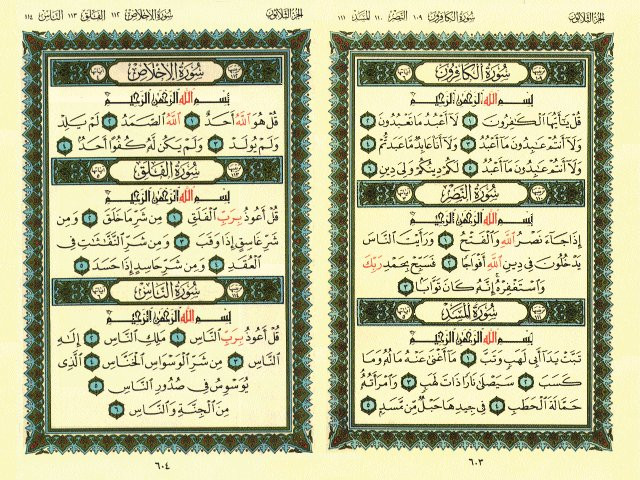 الجزء الثلاثون
سورة الكافرون ١٠٩ النصر ١١٠ المسد ١١١
سُورَةُ الكَافِرُونَ
بِسْمِ اللَّهِ الرَّحْمَٰنِ الرَّحِيمِ
قُلْ يَٰٓأَيُّهَا ٱلْكَٰفِرُونَ ١ لَآ أَعْبُدُ مَا تَعْبُدُونَ ٢
وَلَآ أَنتُمْ عَٰبِدُونَ مَآ أَعْبُدُ ٣ وَلَآ أَنَا۠ عَابِدٌ مَّا عَبَدتُّمْ ٤
وَلَآ أَنتُمْ عَٰبِدُونَ مَآ أَعْبُدُ ٥ لَكُمْ دِينُكُمْ وَلِىَ دِينِ ٦
سُورَةُ النَّصْرِ
بِسْمِ اللَّهِ الرَّحْمَٰنِ الرَّحِيمِ
إِذَا جَآءَ نَصْرُ ٱللَّهِ وَٱلْفَتْحُ ١ وَرَأَيْتَ ٱلنَّاسَ
يَدْخُلُونَ فِى دِينِ ٱللَّهِ أَفْوَاجًا ٢ فَسَبِّحْ بِحَمْدِ رَبِّكَ
وَٱسْتَغْفِرْهُ إِنَّهُۥ كَانَ تَوَّابًۢا ٣
سُورَةُ المَسَد
بِسْمِ اللَّهِ الرَّحْمَٰنِ الرَّحِيمِ
تَبَّتْ يَدَآ أَبِى لَهَبٍ وَتَبَّ ١ مَآ أَغْنَىٰ عَنْهُ مَالُهُۥ وَمَا
كَسَبَ ٢ سَيَصْلَىٰ نَارًا ذَاتَ لَهَبٍ ٣ وَٱمْرَأَتُهُۥ
حَمَّالَةَ ٱلْحَطَبِ ٤ فِى جِيدِهَا حَبْلٌ مِّن مَّسَدٍۭ ٥
٦٠٣
الجزء الثلاثون
سورة الإخلاص ١١٢ الفلق ١١٣ الناس ١١٤
سُورَةُ الإِخْلَاصِ
بِسْمِ اللَّهِ الرَّحْمَٰنِ الرَّحِيمِ
قُلْ هُوَ ٱللَّهُ أَحَدٌ ١ ٱللَّهُ ٱلصَّمَدُ ٢ لَمْ يَلِدْ
وَلَمْ يُولَدْ ٣ وَلَمْ يَكُن لَّهُۥ كُفُوًا أَحَدٌۢ ٤
سُورَةُ الفَلَقِ
بِسْمِ اللَّهِ الرَّحْمَٰنِ الرَّحِيمِ
قُلْ أَعُوذُ بِرَبِّ ٱلْفَلَقِ ١ مِن شَرِّ مَا خَلَقَ ٢ وَمِن
شَرِّ غَاسِقٍ إِذَا وَقَبَ ٣ وَمِن شَرِّ ٱلنَّفَّٰثَٰتِ فِى
ٱلْعُقَدِ ٤ وَمِن شَرِّ حَاسِدٍ إِذَا حَسَدَ ٥
سُورَةُ النَّاسِ
بِسْمِ اللَّهِ الرَّحْمَٰنِ الرَّحِيمِ
قُلْ أَعُوذُ بِرَبِّ ٱلنَّاسِ ١ مَلِكِ ٱلنَّاسِ ٢ إِلَٰهِ
ٱلنَّاسِ ٣ مِن شَرِّ ٱلْوَسْوَاسِ ٱلْخَنَّاسِ ٤ ٱلَّذِى
يُوَسْوِسُ فِى صُدُورِ ٱلنَّاسِ ٥
مِنَ ٱلْجِنَّةِ وَٱلنَّاسِ ٦
٦٠٤